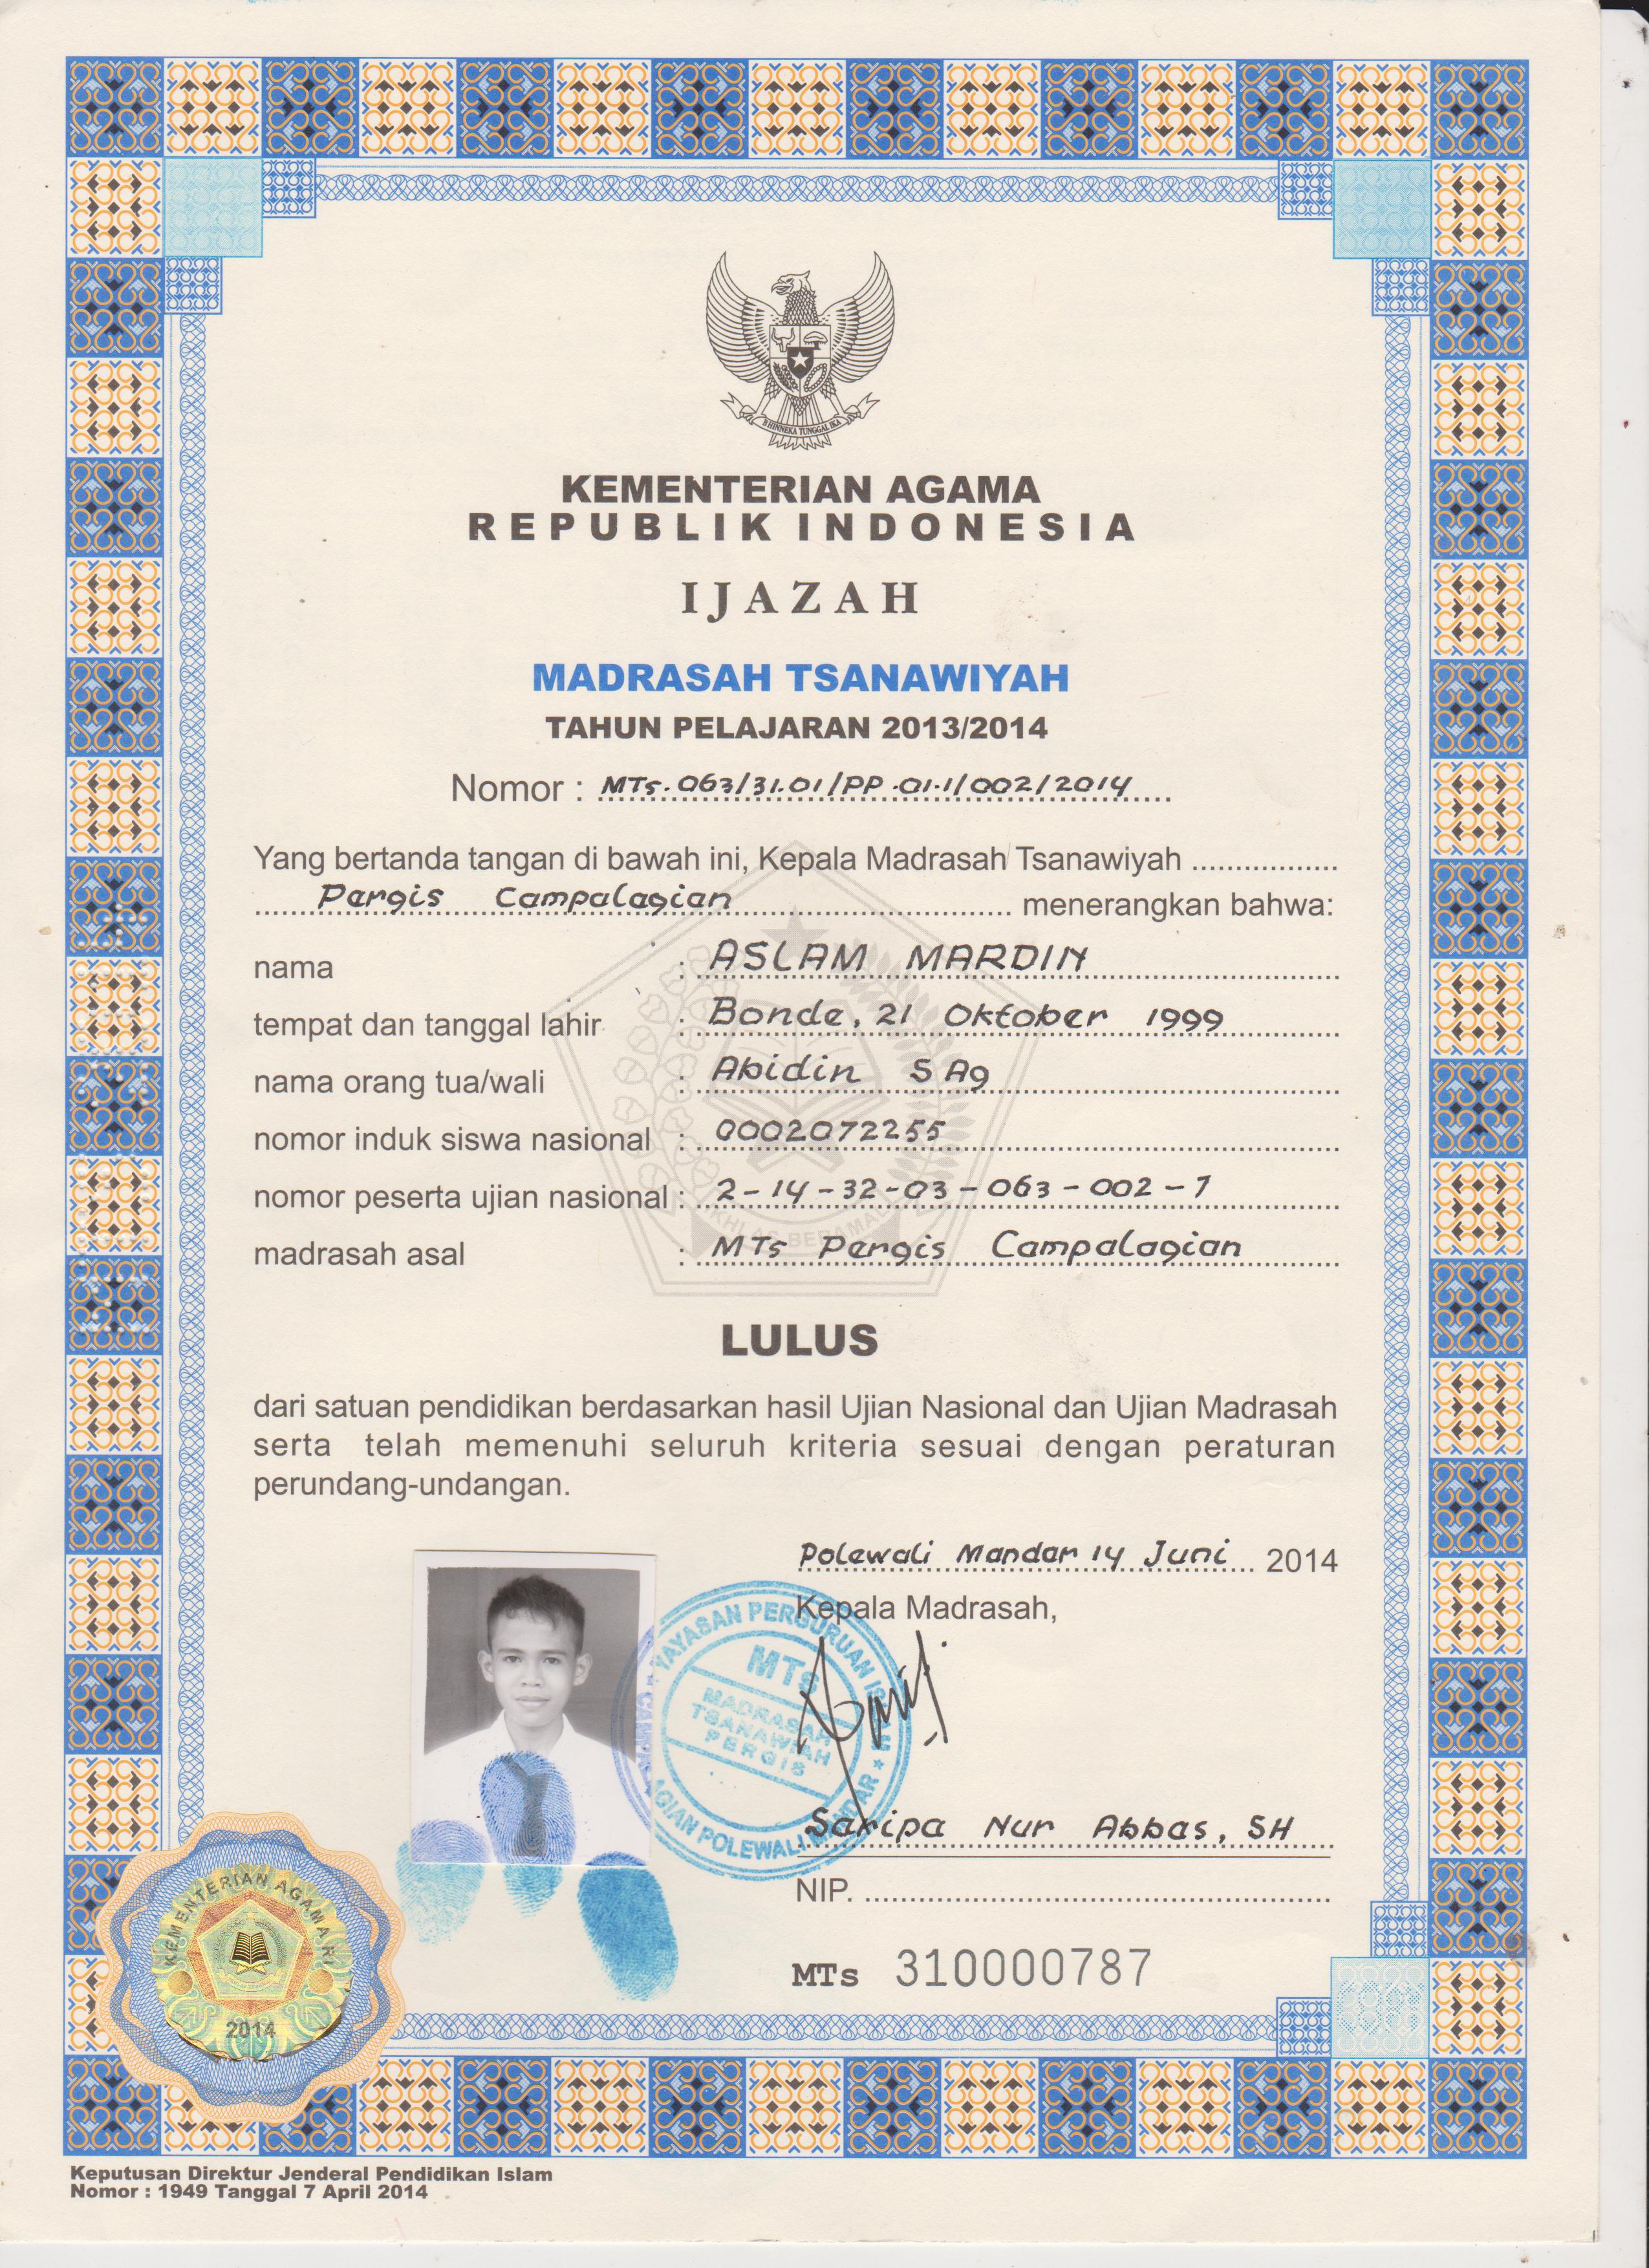 BHINNEKA TUNGGAL IKA
KEMENTERIAN AGAMA
REPUBLIK INDONESIA
IJAZAH
MADRASAH TSANAWIYAH
TAHUN PELAJARAN 2013/2014
Nomor : MTs.063/31.01/PP.01.1/002/2014
Yang bertanda tangan di bawah ini, Kepala Madrasah Tsanawiyah
Pergis Campalagian menerangkan bahwa:
nama : ASLAM MARDIN
tempat dan tanggal lahir : Bonde, 21 Oktober 1999
nama orang tua/wali : Abidin S Ag
nomor induk siswa nasional : 0002072255
nomor peserta ujian nasional : 2-14-32-03-063-002-7
madrasah asal : MTs Pergis Campalagian
IKHLAS BERAMAL
LULUS
dari satuan pendidikan berdasarkan hasil Ujian Nasional dan Ujian Madrasah
serta telah memenuhi seluruh kriteria sesuai dengan peraturan
perundang-undangan.
Polewali Mandar 14 Juni 2014
Kepala Madrasah,
YAYASAN PERGURUAN ISLAM
MTs
MADRASAH
TSANAWIAH
PERGIS
POLEWALI MANDAR
Saripa Nur Abbas, SH
NIP.
MTs 310000787
KEMENTERIAN AGAMA RI
2014
Keputusan Direktur Jenderal Pendidikan Islam
Nomor : 1949 Tanggal 7 April 2014